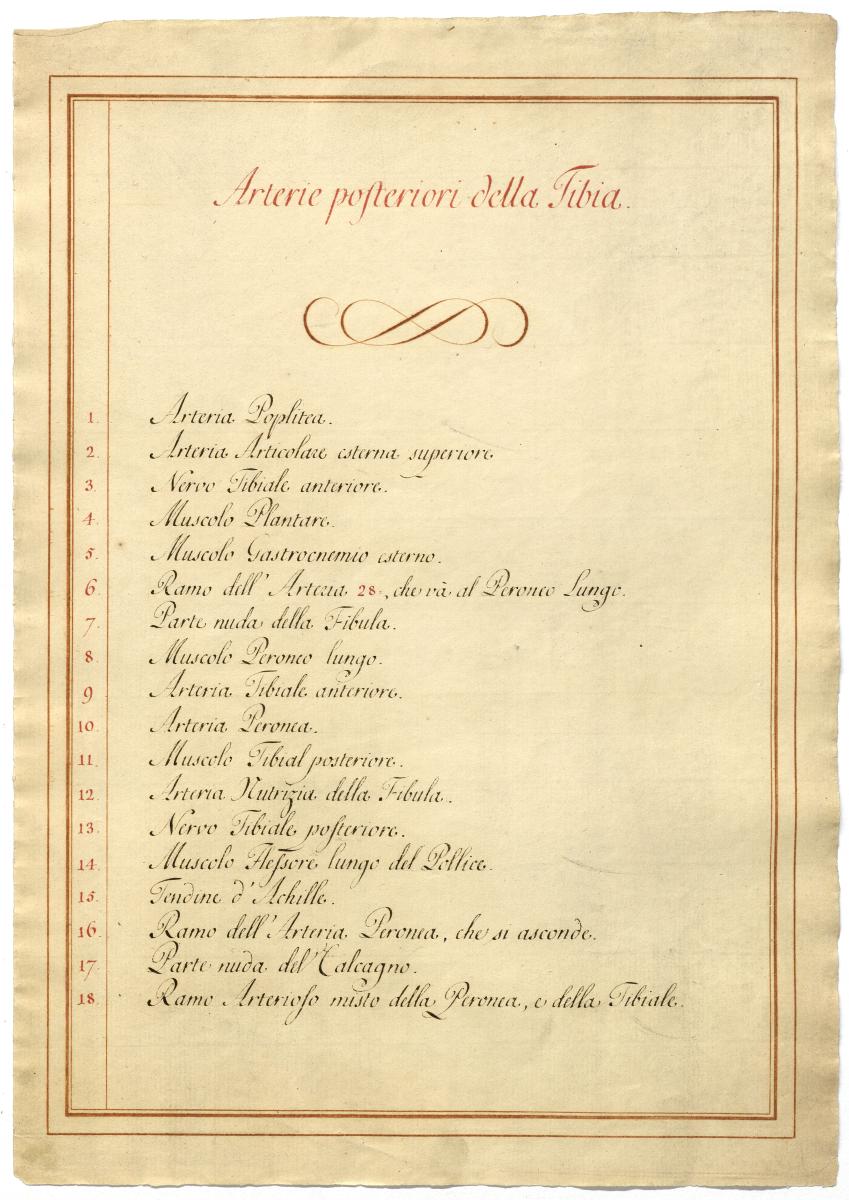 Arterie poſteriori della Tibia.
1. Arteria Poplitea.
2. Arteria Articolare esterna superiore
3. Nervo Tibiale anteriore.
4. Muscolo Plantare.
5. Muscolo Gastrocnemio esterno.
6. Ramo dell' Arteria 28., che và al Peroneo Lungo.
7. Parte nuda della Fibula.
8. Muscolo Peroneo lungo.
9. Arteria Tibiale anteriore.
10. Arteria Peronea.
11. Muscolo Tibial posteriore.
12. Arteria Nutrizia della Fibula.
13. Nervo Tibiale poſteriore.
14. Muscolo Fleſsore lungo del Pollice.
15. Tendine d' Achille.
16. Ramo dell' Arteria Peronea, che si asconde.
17. Parte nuda del Calcagno.
18. Ramo Arterioſo misto della Peronea, e della Tibiale.